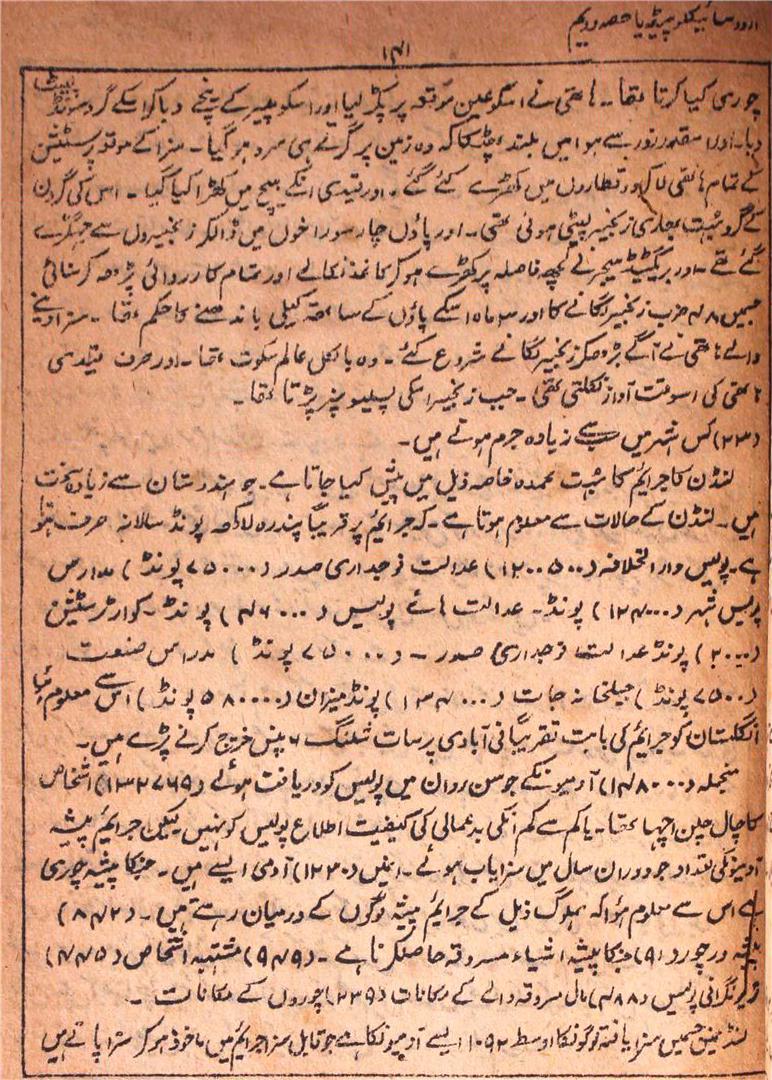 اردو سائیکلوپیڈیا حصہ دویم
۱۴۱
چوری کیا کرتا تھا۔ ہاتھی نے اسکو عین موقعہ پر پکڑ لیا اور اسکو پیر کے نیچے دبا کر اسکے گرد سونڈ لپیٹ
دیا۔ اور اسقدر زور سے ہوا میں بلند پٹکا کہ وہ زمین پر گرتے ہی سرد ہو گیا۔ سزا کے موقعہ پر سٹیشن
کے تمام ہاتھی لا کر دو قطاروں میں کھڑے کئے گئے۔ اور قیدی انکے بیچ میں کھڑا کیا گیا۔ اس کی گردن
کے گرد بہت بھاری زنجیر لپٹی ہوئی تھی۔ اور پاؤں چار سوراخوں میں ڈالکر زنجیروں سے جکڑے
گئے تھے۔ اور بریگیڈ میجر نے کچھ فاصلہ پر کھڑے ہو کر کاغذ نکالے اور تمام کارروائی پڑھ کر سنائی
جسمیں ۴۸ ضرب زنجیر لگانے کا اور ۳ ماہ اسکے پاؤں کے ساتھ کیلی باندھنے کا حکم تھا۔ سزا دینے
والے ہاتھی نے آگے بڑھکر زنجیر لگانے شروع کئے۔ وہ بالکل عالم سکوت تھا۔ اور صرف قیدی
ہاتھی کی اسوقت آواز نکلتی تھی۔ جب زنجیر اسکی پسلیو نپر پڑتا تھا۔
(۲۳) کس شہر میں سب سے زیادہ جرم ہوتے ہیں۔
لنڈن کا جرایم کا بہت عمدہ خاصہ ذیل میں پیش کیا جاتا ہے۔ جو ہندوستان سے زیادہ سخت
ہیں۔ لنڈن کے حالات سے معلوم ہوتا ہے۔ کہ جرایم پر قریباً پندرہ لاکھ پونڈ سالانہ صرف ہوتا
ہے۔ پولیس دار الخلافہ (۱۲۰۰۵۰۰) عدالت فوجداری صدر (۷۵۰۰۰ پونڈ) مدارس
پولیس شہر (۱۲۴۰۰۰) پونڈ۔ عدالت ہائے پولیس (۴۶۰۰۰) پونڈ۔ کوارٹر سٹیشن
(۲۰۰۰) پونڈ عدالت فوجداری صدر۔ (۷۵۰۰۰ پونڈ) مدراس صنعت
(۷۵۰۰ پونڈ) جیلخانہ جات (۱۳۴۰۰۰) پونڈ میزان (۵۸۰۰۰۰ پونڈ) اس سے معلوم ہوتا
انگلستان کو جرایم کی بابت تقریباً فی آبادی پر سات شلنگ ۶ پنس خرچ کرنے پڑے ہیں۔
منجملہ (۱۴۸۰۰۰) آدمیونکے جو سن رواں میں پولیس کو دریافت ہوئے (۱۳۲۷۶۹) اشخاص
کا چال چلن اچھا تھا۔ یا کم سے کم انکی بدعمالی کی کیفیت اطلاع پولیس کو نہیں لیکن جرایم پیشہ
آدمیونکی تعداد جو دوران سال میں سزایاب ہوئے۔ انمیں (۱۲۳۰) آدمی ایسے ہیں۔ جنکا پیشہ چوری
ہے اس سے معلوم ہؤا کہ ہملوگ ذیل کے جرایم پیشہ لوگوں کے درمیان رہتے ہیں۔ (۸۴۲)
پیشہ ور چور (۹۱) جنکا پیشہ اشیاء مسروقہ حاصل کرنا ہے۔ (۹۴۹) مشتبہ اشخاص (۴۴۵)
زیر نگرانی پولیس (۴۸۸) مال مسروقہ والے کے مکانات (۲۳۹) چوروں کے مکانات۔
لنڈنمیں جسمیں سزا یافتہ لوگونکا اوسط ۱۰۹۲ ایسے آدمیونکا ہے جو قابل سزا جرایم میں ماخوذ ہو کر سزا پاتے ہیں